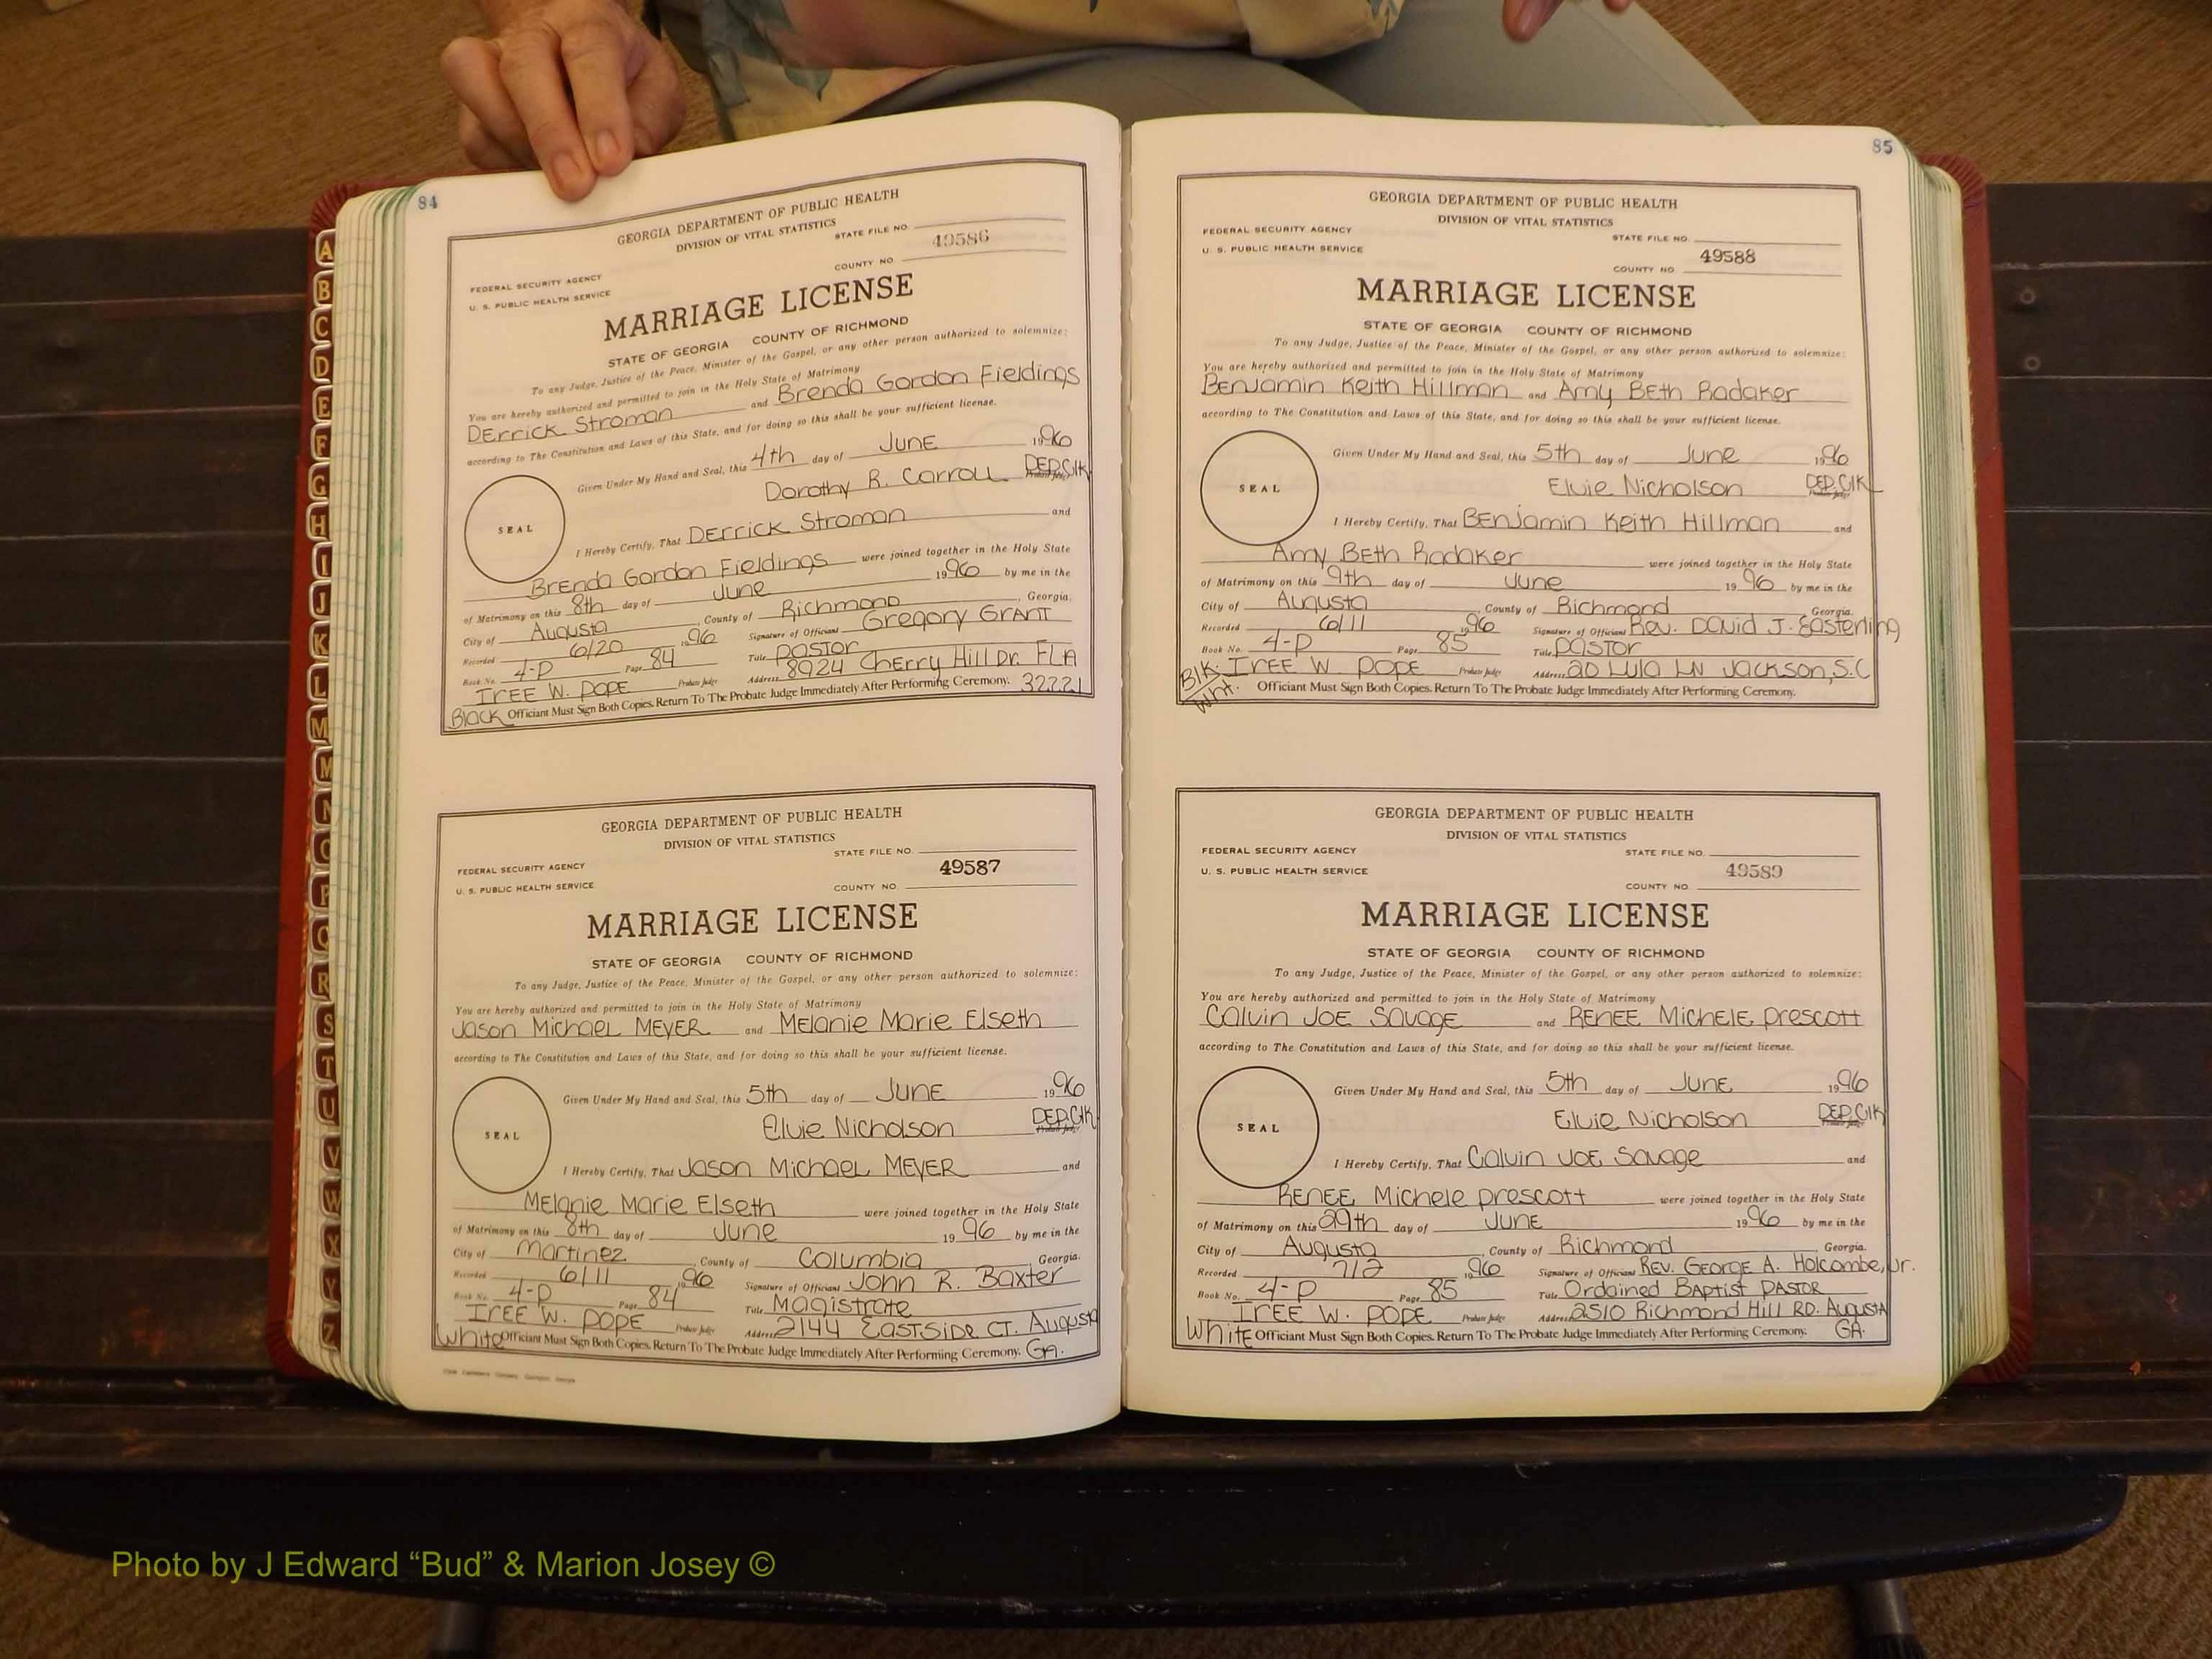 84
GEORGIA DEPARTMENT OF PUBLIC HEALTH
DIVISION OF VITAL STATISTICS
STATE FILE NO.
49586
FEDERAL SECURITY AGENCY
COUNTY NO.
U. S. PUBLIC HEALTH SERVICE
MARRIAGE LICENSE
STATE OF GEORGIA COUNTY OF RICHMOND
To any Judge, Justice of the Peace, Minister of the Gospel, or any other person authorized to solemnize:
You are hereby authorized and permitted to join in the Holy State of Matrimony
Derrick Stroman and Brenda Gordon Fieldings
according to The Constitution and Laws of this State, and for doing so this shall be your sufficient license.
Given Under My Hand and Seal, this 4th day of June 1996
Dorothy R. Carroll DEP. Clk Probate Judge
SEAL
I Hereby Certify, That Derrick Stroman and
Brenda Gordon Fieldings were joined together in the Holy State
of Matrimony on this 8th day of June 1996 by me in the
City of Augusta, County of Richmond, Georgia.
Recorded 6/20 1996 Signature of Official Gregory GRANT
Book No. 4-P Page 84 Title Pastor
IREE W. POPE Probate Judge Address 8924 Cherry Hill Dr. FLA
Black Officiant Must Sign Both Copies. Return To The Probate Judge Immediately After Performing Ceremony. 32221
GEORGIA DEPARTMENT OF PUBLIC HEALTH
DIVISION OF VITAL STATISTICS
STATE FILE NO.
FEDERAL SECURITY AGENCY
49587
U. S. PUBLIC HEALTH SERVICE
COUNTY NO.
MARRIAGE LICENSE
STATE OF GEORGIA COUNTY OF RICHMOND
To any Judge, Justice of the Peace, Minister of the Gospel, or any other person authorized to solemnize:
You are hereby authorized and permitted to join in the Holy State of Matrimony
Jason Michael MEYER and Melanie Marie Elseth
according to The Constitution and Laws of this State, and for doing so this shall be your sufficient license.
Given Under My Hand and Seal, this 5th day of June 1996
Elvie Nicholson DEP. Clk Probate Judge
SEAL
I Hereby Certify, That Jason Michael MEYER and
Melanie Marie Elseth were joined together in the Holy State
of Matrimony on this 8th day of June 1996 by me in the
City of Martinez, County of Columbia Georgia.
Recorded 6/11 1996 Signature of Official John R. Baxter
Book No. 4-P Page 84 Title Magistrate
IREE W. POPE Probate Judge Address 2144 EastSide CT. Augusta
White Officiant Must Sign Both Copies. Return To The Probate Judge Immediately After Performing Ceremony. GA.
85
GEORGIA DEPARTMENT OF PUBLIC HEALTH
DIVISION OF VITAL STATISTICS
FEDERAL SECURITY AGENCY
STATE FILE NO.
U. S. PUBLIC HEALTH SERVICE
49588
COUNTY NO.
MARRIAGE LICENSE
STATE OF GEORGIA COUNTY OF RICHMOND
To any Judge, Justice of the Peace, Minister of the Gospel, or any other person authorized to solemnize:
You are hereby authorized and permitted to join in the Holy State of Matrimony
Benjamin Keith Hillman and Amy BEth Radaker
according to The Constitution and Laws of this State, and for doing so this shall be your sufficient license.
Given Under My Hand and Seal, this 5th day of June 1996
Elvie Nicholson DEP. Clk Probate Judge
SEAL
I Hereby Certify, That Benjamin Keith Hillman and
Amy BEth Radaker were joined together in the Holy State
of Matrimony on this 9th day of June 1996 by me in the
City of Augusta, County of Richmond Georgia.
Recorded 6/11 1996 Signature of Official Rev. David J. Easterling
Book No. 4-P Page 85 Title Pastor
Blk. IREE W. POPE Probate Judge Address 20 Lula LN Jackson, S.C
Wht. Officiant Must Sign Both Copies. Return To The Probate Judge Immediately After Performing Ceremony.
GEORGIA DEPARTMENT OF PUBLIC HEALTH
DIVISION OF VITAL STATISTICS
FEDERAL SECURITY AGENCY
STATE FILE NO.
U. S. PUBLIC HEALTH SERVICE
49589
COUNTY NO.
MARRIAGE LICENSE
STATE OF GEORGIA COUNTY OF RICHMOND
To any Judge, Justice of the Peace, Minister of the Gospel, or any other person authorized to solemnize:
You are hereby authorized and permitted to join in the Holy State of Matrimony
Calvin JOE Savage and RENEE Michele Prescott
according to The Constitution and Laws of this State, and for doing so this shall be your sufficient license.
Given Under My Hand and Seal, this 5th day of June 1996
Elvie Nicholson DEP. Clk Probate Judge
SEAL
I Hereby Certify, That Calvin JOE Savage and
RENEE Michele Prescott were joined together in the Holy State
of Matrimony on this 29th day of June 1996 by me in the
City of Augusta, County of Richmond Georgia.
Recorded 7/2 1996 Signature of Official REV. George A. Holcombe, Jr.
Book No. 4-P Page 85 Title Ordained Baptist PASTOR
IREE W. POPE Probate Judge Address 2510 Richmond Hill RD. Augusta
White Officiant Must Sign Both Copies. Return To The Probate Judge Immediately After Performing Ceremony. GA.
A
B
C
D
E
F
G
H
I
J
K
L
M
M
N
O
P
Q
R
S
T
U
V
W
X
Y
Z
Photo by J Edward “Bud” & Marion Josey ©